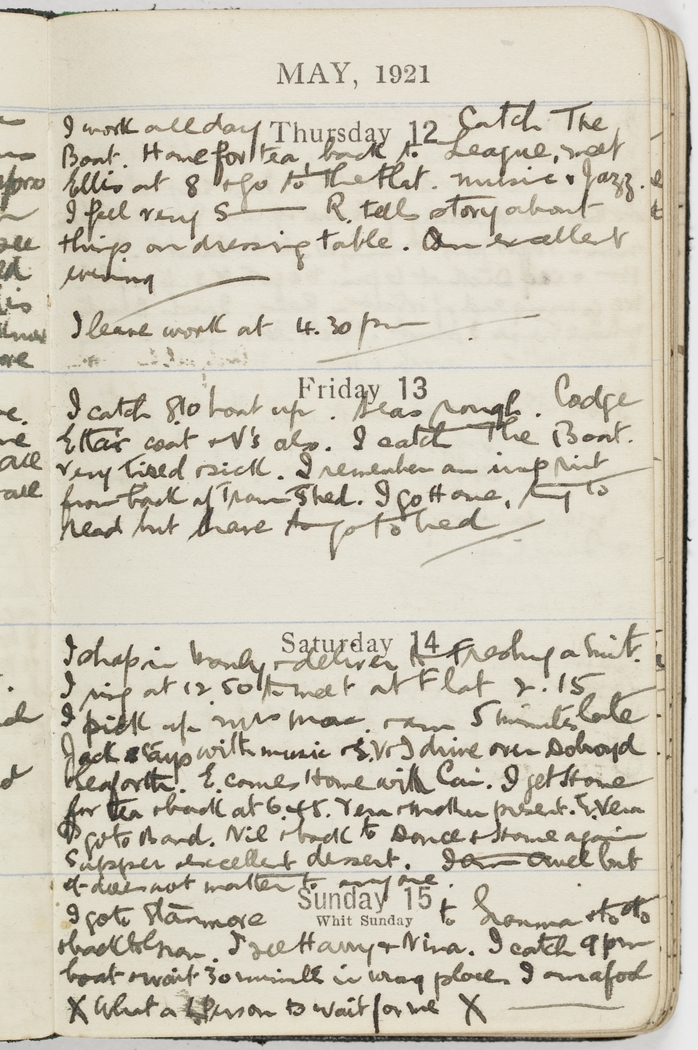 MAY, 1921
Thursday 12
I work all day Catch The
Boat. Home for tea, back to League, meet
Ellis at 8 & go to the flat. music & Jazz.
I feel very S—— R. tells story about
things on dressing table. An excellent
evening
I leave work at 4.30 pm
Friday 13
I catch 810 boat up. Seas rough. Codge
Etta's coat & V's also. I catch The Boat.
very tired & sick. I remember an imprint
from back of Tram Shed. I go Home, try to
read but have to go to bed
Saturday 14
I shop in & deliver a suit.
I ring at 12.50 to meet at flat 2.15
I pick up mrs mac. 5 minutes late
Jack says with music & E.V. & I drive over
Seaforth. E. comes Home with I get Home
for tea & back at 6.45. Vera & mother present. E. Vera
I go to Band. Nil & back to Dance & Home again
Supper excellent dessert. but
it does not matter to anyone.
Sunday 15
Whit Sunday
I go to Stanmore to
& back I see Harry & Nina. I catch 9 pm
boat & wait 30 minutes in wrong place. I am a fool
X What a Person to wait for me X